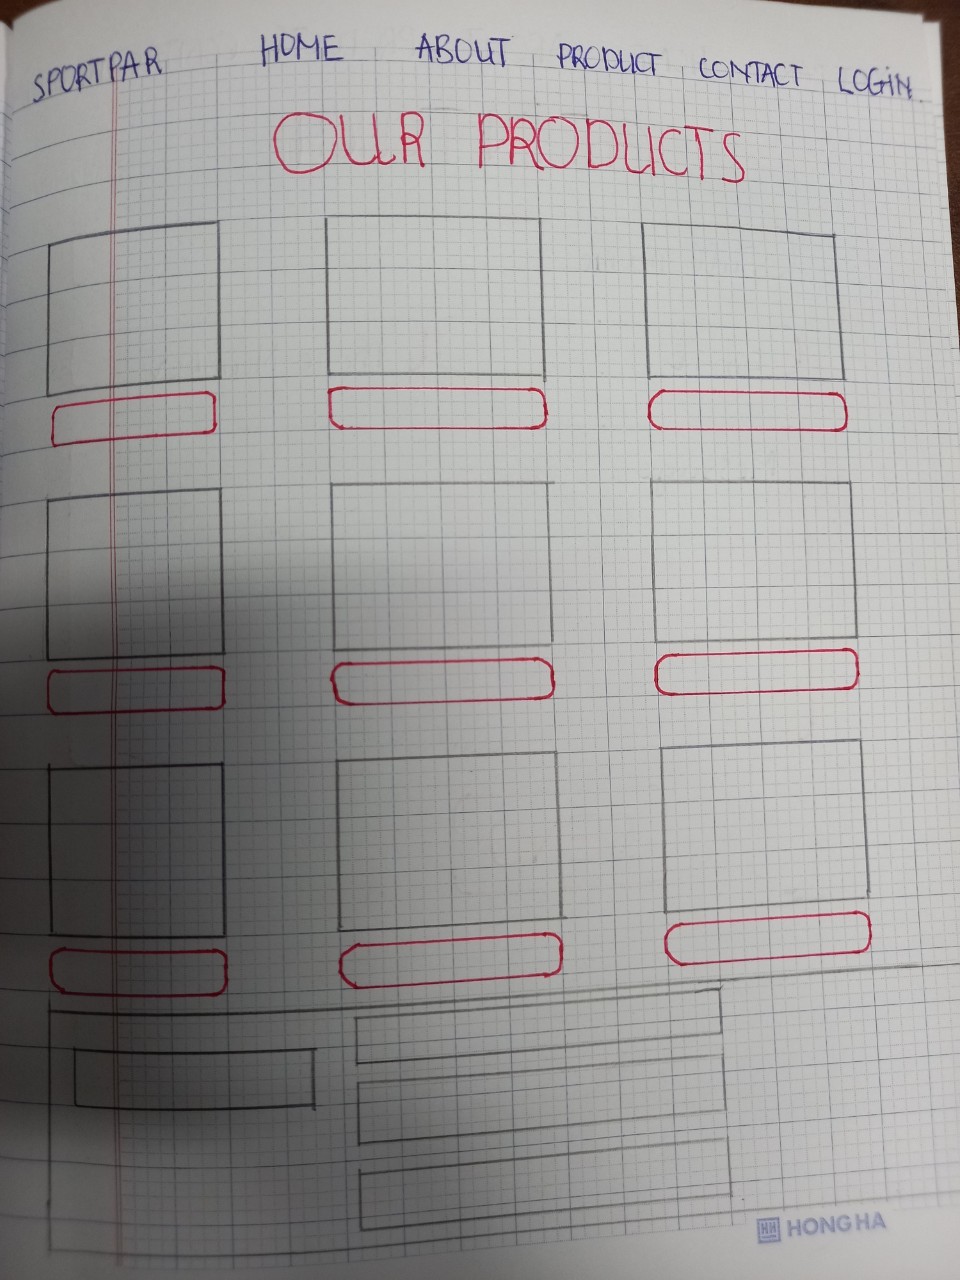 SPORTPAR HOME ABOUT PRODUCT CONTACT LOGIN
OUR PRODUCTS
HH HONG HA